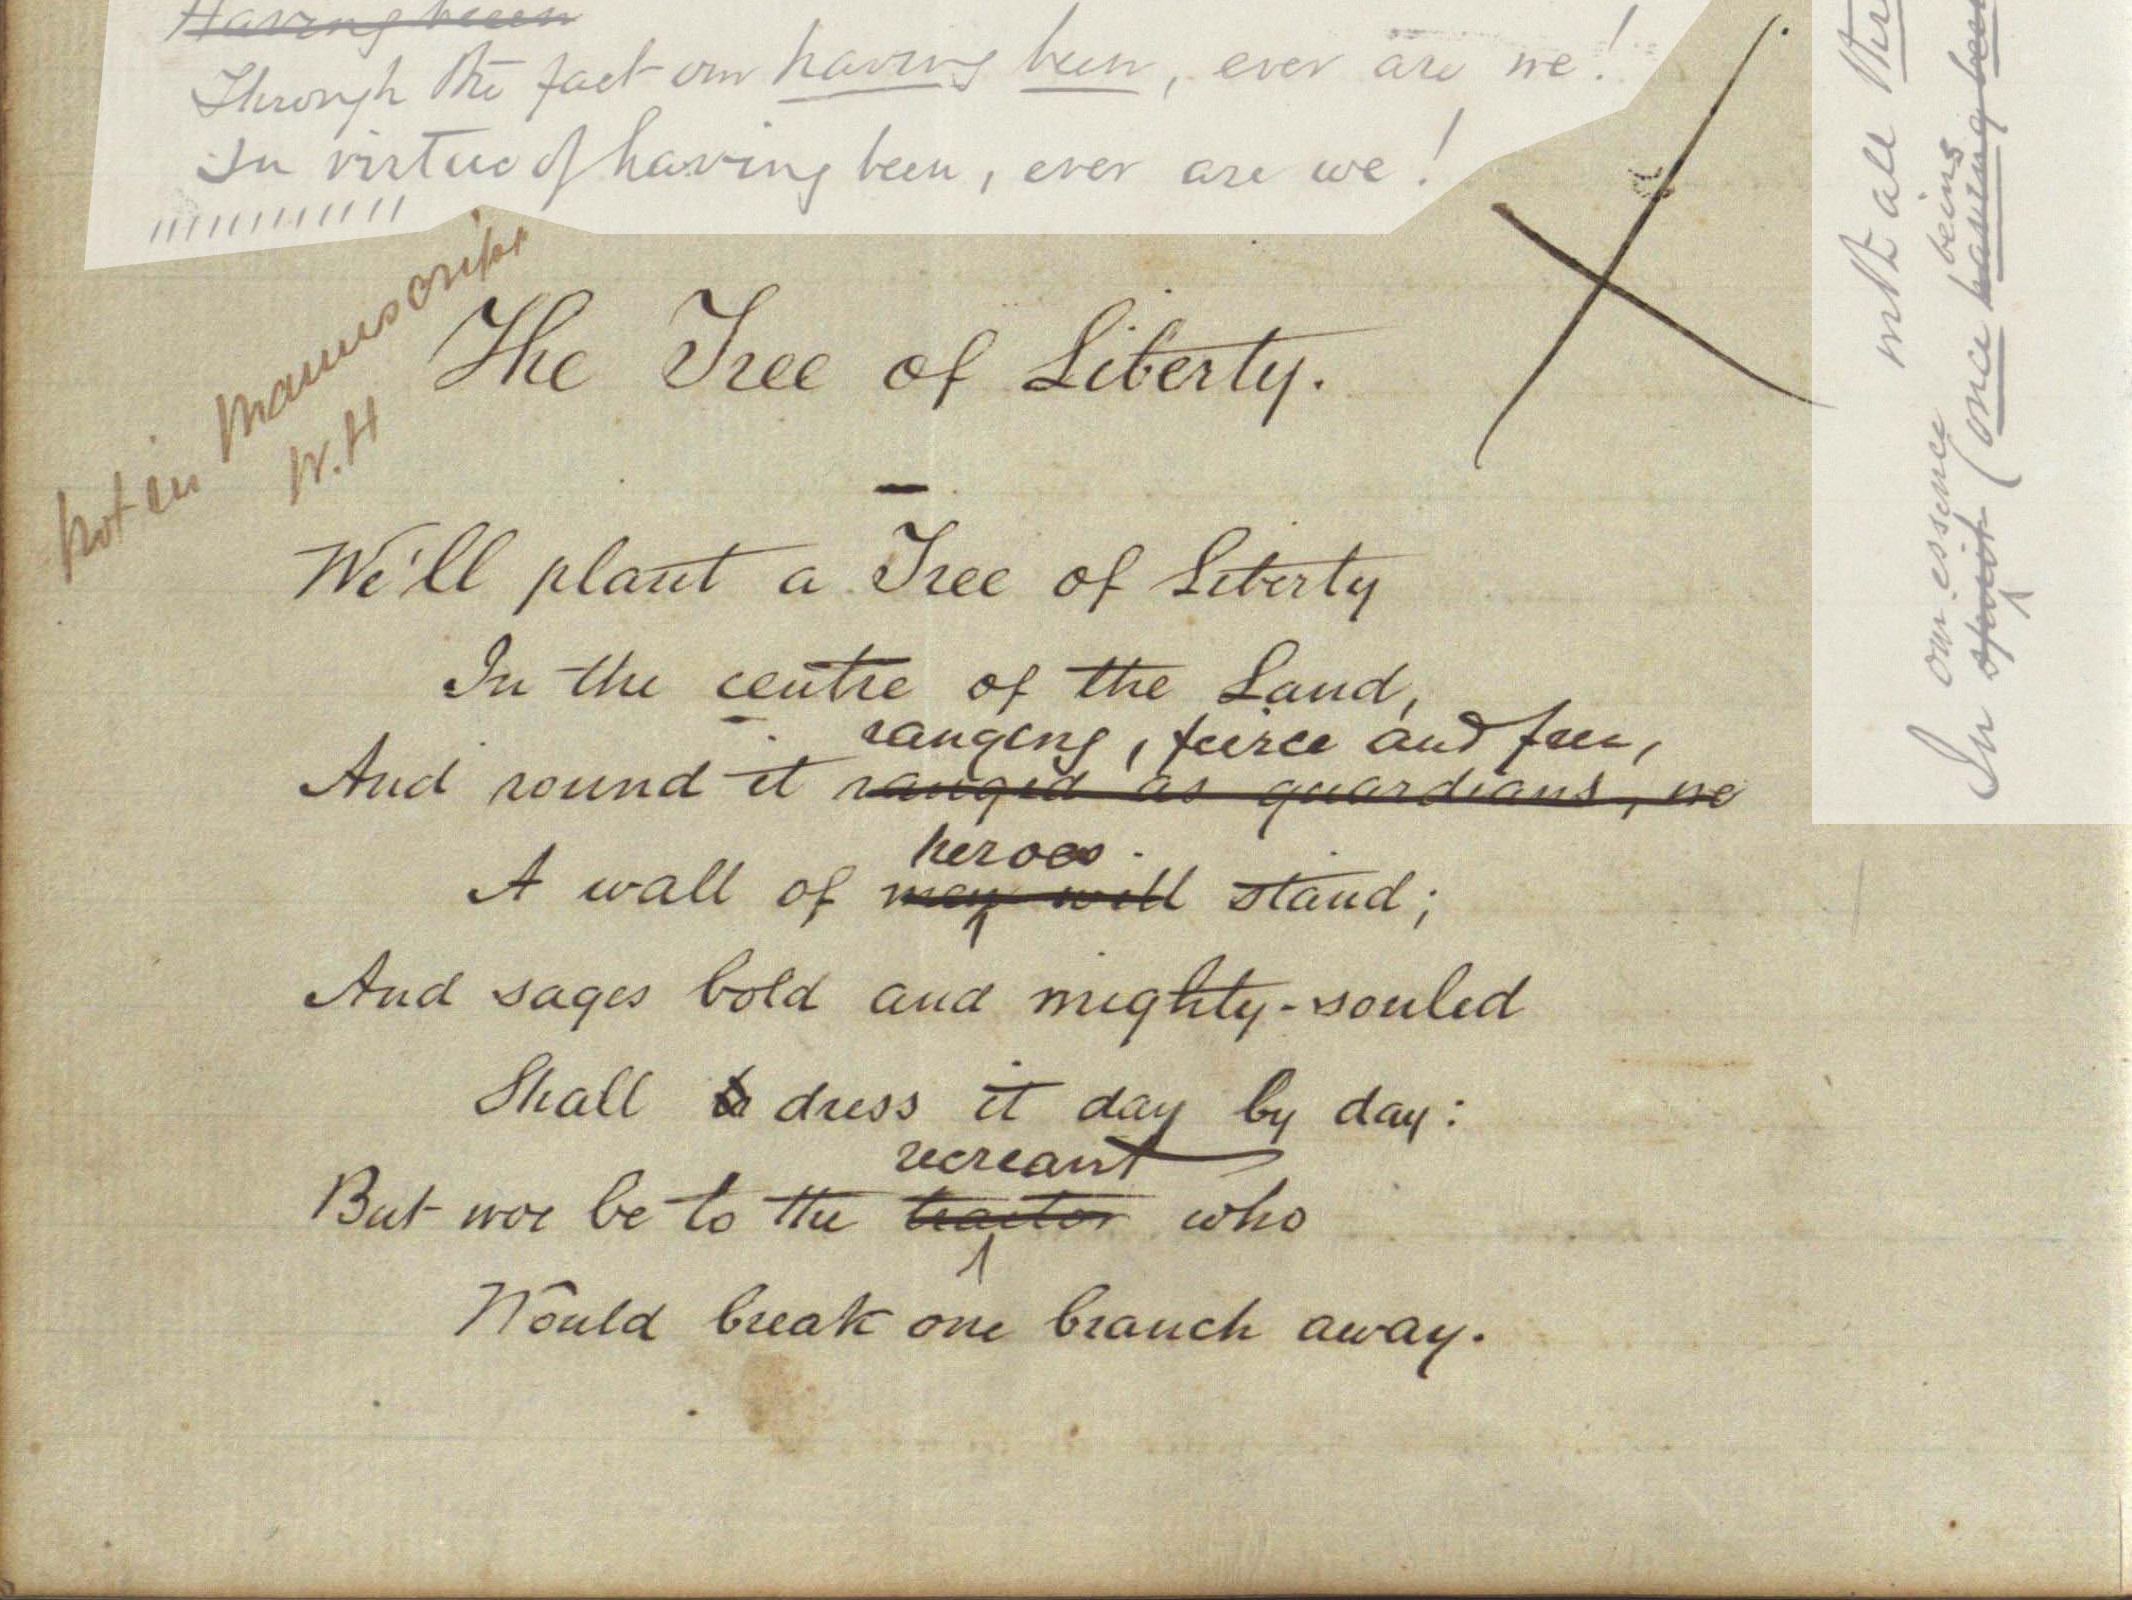 Having been
Through the fact our having been, ever are we!
In virtue of having been, ever are we!
not in Manuscript
W.H
The Tree of Liberty.
We'll plant a Tree of Liberty
In the centre of the Land,
ranging, feirce and free,
And round it ranged as guardians, we
heroes
A wall of men will stand;
And sages bold and mighty-souled
Shall dress it day by day:
recreant
But woe be to the traitor who
Would break one branch away.
with all
our essence being
In spirit (once having been